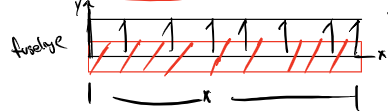 Y
fuselage
x
x